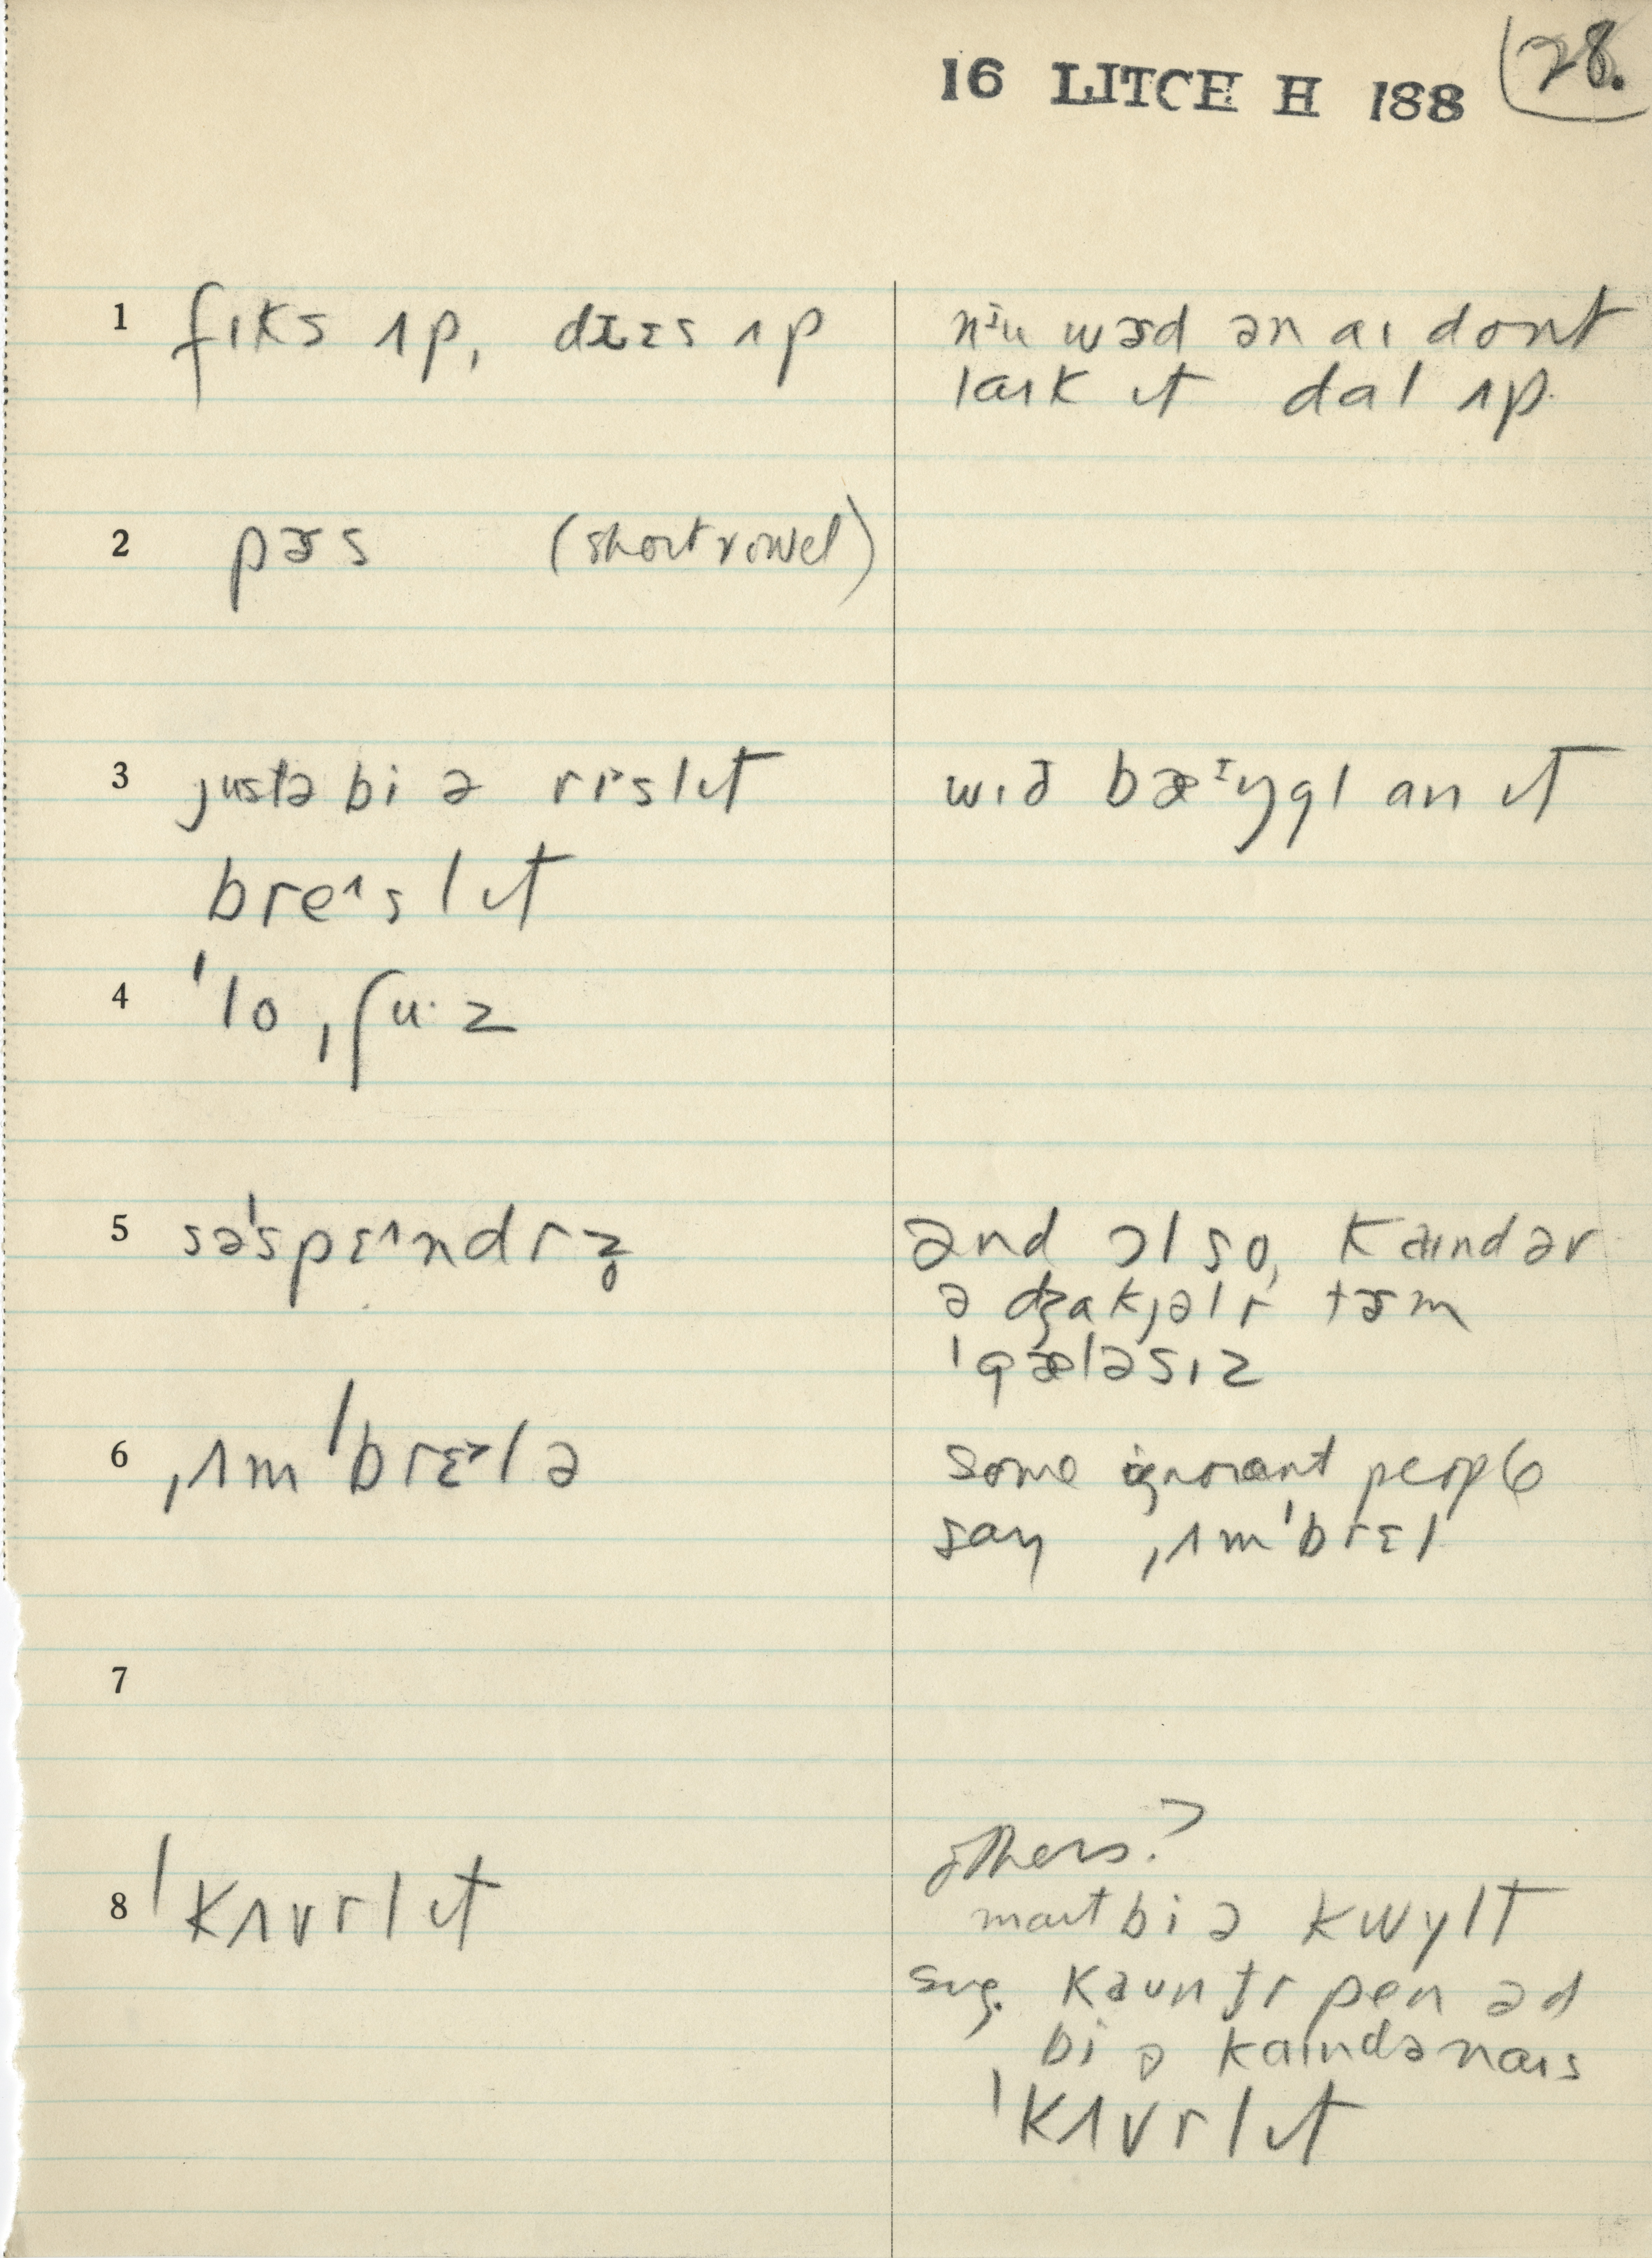 16 LITCH H 188 28.
1 fɪks ʌp, drɛs ʌp
nɪu wɚd ən aɪ dont
laɪk ɪt dal ʌp.
2 pɚs (short vowel)
3 justə bi ə rɪslɪt
wɪð bæɪŋgl an ɪt
breˈslɪt
4 ˈlo ˌʃuˑz
5 səˈspɛˈndrz̥
ənd ɔlso, kaɪnd ər
ə dʒakjəlr tɚm
ˈgæləsɪz
6 ˌʌmˈbrɛ˃lə
some ignorant people
say ˌʌmˈbrɛl
7
8 ˈkʌvrlɪt
others?
maɪt bi ə kwylt
sug. kaʊntr pen əd
bi ə kaɪndə naɪs
ˈkʌvrlɪt